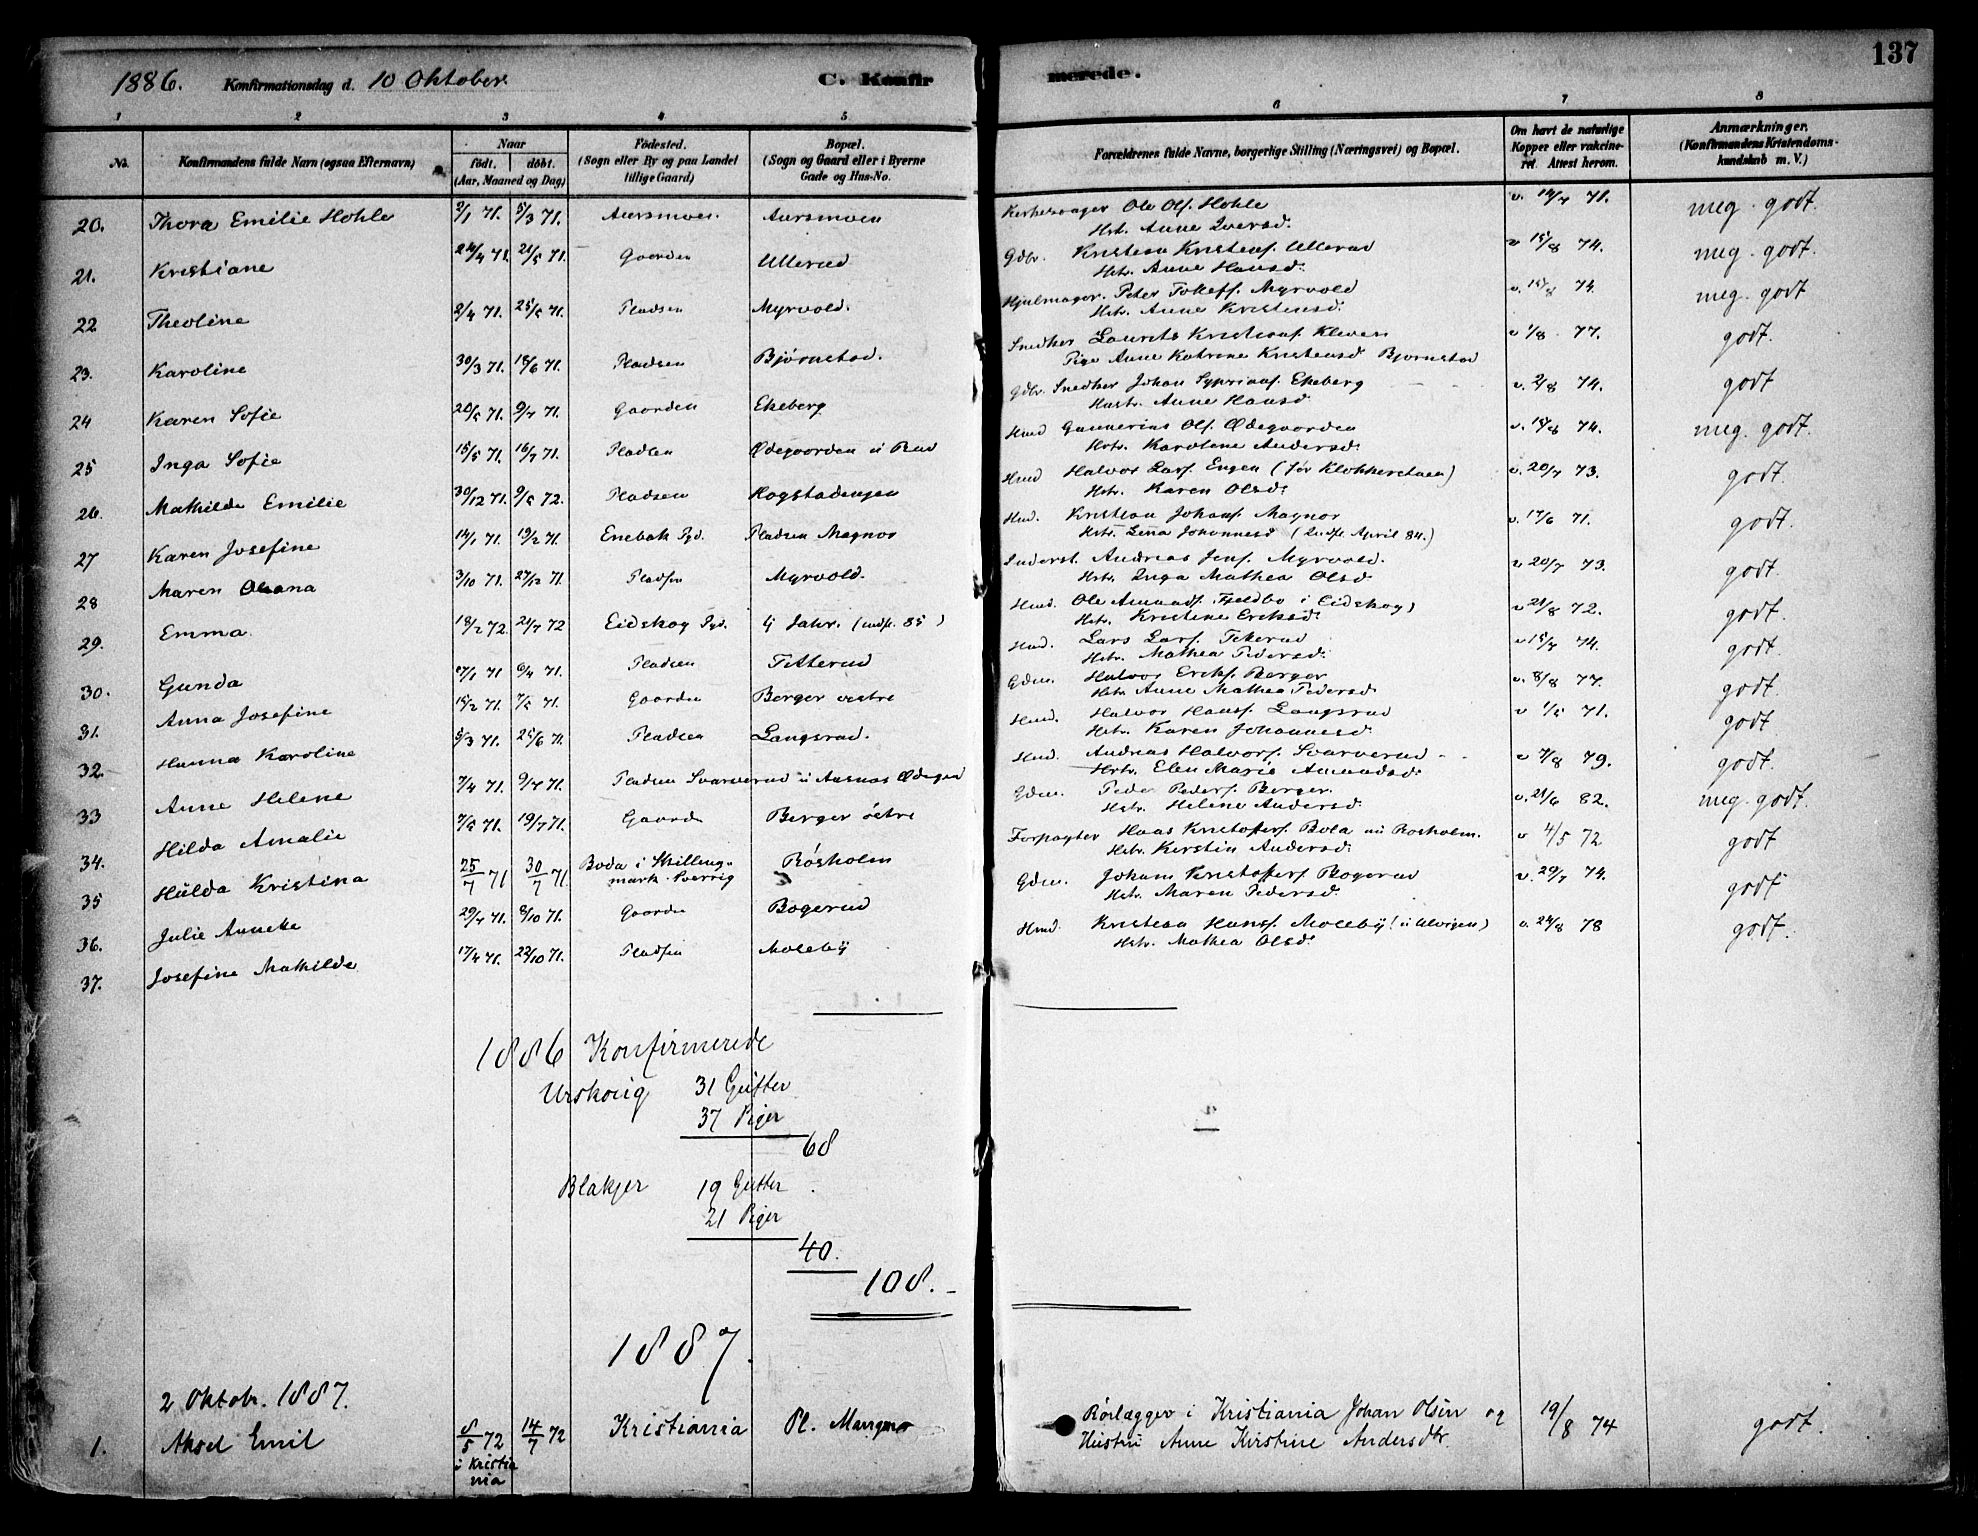 137
1886. Konfirmationsdag d. 10 Oktober. C. Konfirmerede.
1 2 3 4 5 6 7 8
No. Konfirmandens fulde Navn (ogsaa Efternavn) Naar født. døbt. (Aar, Maaned og Dag) Fødested. (Sogn eller By og paa Landet tillige Gaard) Bopæl. (Sogn og Gaard eller i Byerne Gade og Hus-No. Forældrenes fulde Navne, borgerlige Stilling (Næringsvei) og Bopæl. Om havt de naturlige Kopper eller vakcineret. Attest herom. Anmærkninger. (Konfirmandens Kristendomskundskab m. V.)
20. Thora Emilie Hohle 2/1 71. 5/3 71. Aursmoen Aursmoen Ole Ols. Hohle v. 14/7 71. meg. godt.
Hst. Anne Iversd.
21. Kristiane 24/4 71. 21/5 71. Gaarden Ullerud Gdbr. Kristian Kristens. Ullerud v 15/8 74. meg. godt.
Hstr. Anne Hansd.
22 Theoline 2/4 71. 25/5 71. Pladsen Myrvold. Hjulmager. Peter Myrvold v. 15/8 74. meg. godt
Hstr. Anne Kristensd.
23. Karoline 30/3 71. 18/6 71. Pladsen Bjørnstad. Snedker Laurits Kristians. Kleven v 1/8 77. godt.
Pige Anne Katrine Kristensd Bjørnstad
24 Karen Sofie 20/5 71. 9/7 71. Gaarden Ekeberg Gdbr. Snedker Johan Syprians. Ekeberg v. 2/8 74. godt
Hustr. Anne Hansd.
25 Inga Sofie 15/5 71. 16/7 71. Pladsen Ødegaarden u Rud Hmd Gunnerius Ols. Ødegaarden v. 15/8 74. meg. godt.
Hstr. Karoline Andersd.
26. Mathilde Emilie 30/12 71. 9/5 72. Pladsen Hogstadengen Hmd Halvor Lars. Engen (før Klokkerstuen) v. 20/7 73. godt
Hstr. Karen Olsd.
27 Karen Josefine 14/1 71. 19/2 71. Enebak Pgd. Pladsen Magnor Hmd. Kristian Johans. Magnor v. 17/6 71. godt.
Hstr. Lena Johannesd (Indfl. April 84.)
28 Maren Oleana 3/10 71. 27/12 71. Pladsen Myrvold. Inderst. Andreas Jens. Myrvold. v 20/7 73. godt.
Hstr. Inga Mathea Olsd
29. Emma. 18/2 72. 21/7 72 Eidskog Pgd. (indfl. 85) Hmd. Ole Amunds. Fjeldbo i Eidskog) v 21/8 72. godt.
Hstr. Kristine Eriksd.
30. Gunda 27/1 71. 6/4 71. Pladsen Tetterud Hmd. Lars Lars. v 15/7 74. godt.
Hstr. Mathea Pedersd.
31. Anna Josefine 15/2 71. 7/5 71. Gaarden Berger vestre Gdm. Halvor Eriks. Berger v. 8/8 77. godt
Hstr. Anne Mathea Pedersd.
32. Hanna Karoline 5/3 71. 25/6 71. Pladsen Langsrud. Hmd. Halvor Hans. Langsrud v 1/5 71. godt
Hstr. Karen Johannesd.
33 Anne Helene 7/4 71. 9/7 71. Pladsen Svarverud u Aasnas Ødegrd Hmd. Andreas Halvors. Svarverud v 7/8 79. godt.
Hstr. Elen Marie Amundsd.
34. Hilda Amalie 7/5 71. 19/7 71. Gaarden Berger østre Gdm. Peder Peders. Berger. v. 21/6 82. meg. godt.
Hstr. Helene Andersd.
35 Hulda Kristina 25/7 71 30/7 71. Boda i Skillingmark Sverrig Røsholm Forpagter Haas Kristoffers. Bola nu Rosholm. v 4/5 72 godt
Hstr. Kerstin Andersd.
36. Julie Annette 29/7 71. 8/10 71. Gaarden Bogerud Gdm. Johan Kristoffers. Bogerud v. 29/7 74. godt
Hstr. Maren Pedersd.
37. Josefine Mathilde 17/4 71. 22/10 71. Pladsen Moleby Hmd. Kristian Hans. Moleby v. 24/8 78 godt.
Hstr. Mathea Olsd.
1886 Konfirmerede
Urskoug 31 Gutter
37 Piger
68
Blakjer 19 Gutter
21 Piger
40.
108.
1887.
2 Oktob. 1887.
1. Aksel Emil 8/5 72 14/7 72 Kristiania Pl. Mangnor Rørlægger i Kristiania Johan Olsen og 19/8 74 godt.
i Kristiania Hustru Anne Kirstine Andersdtr.